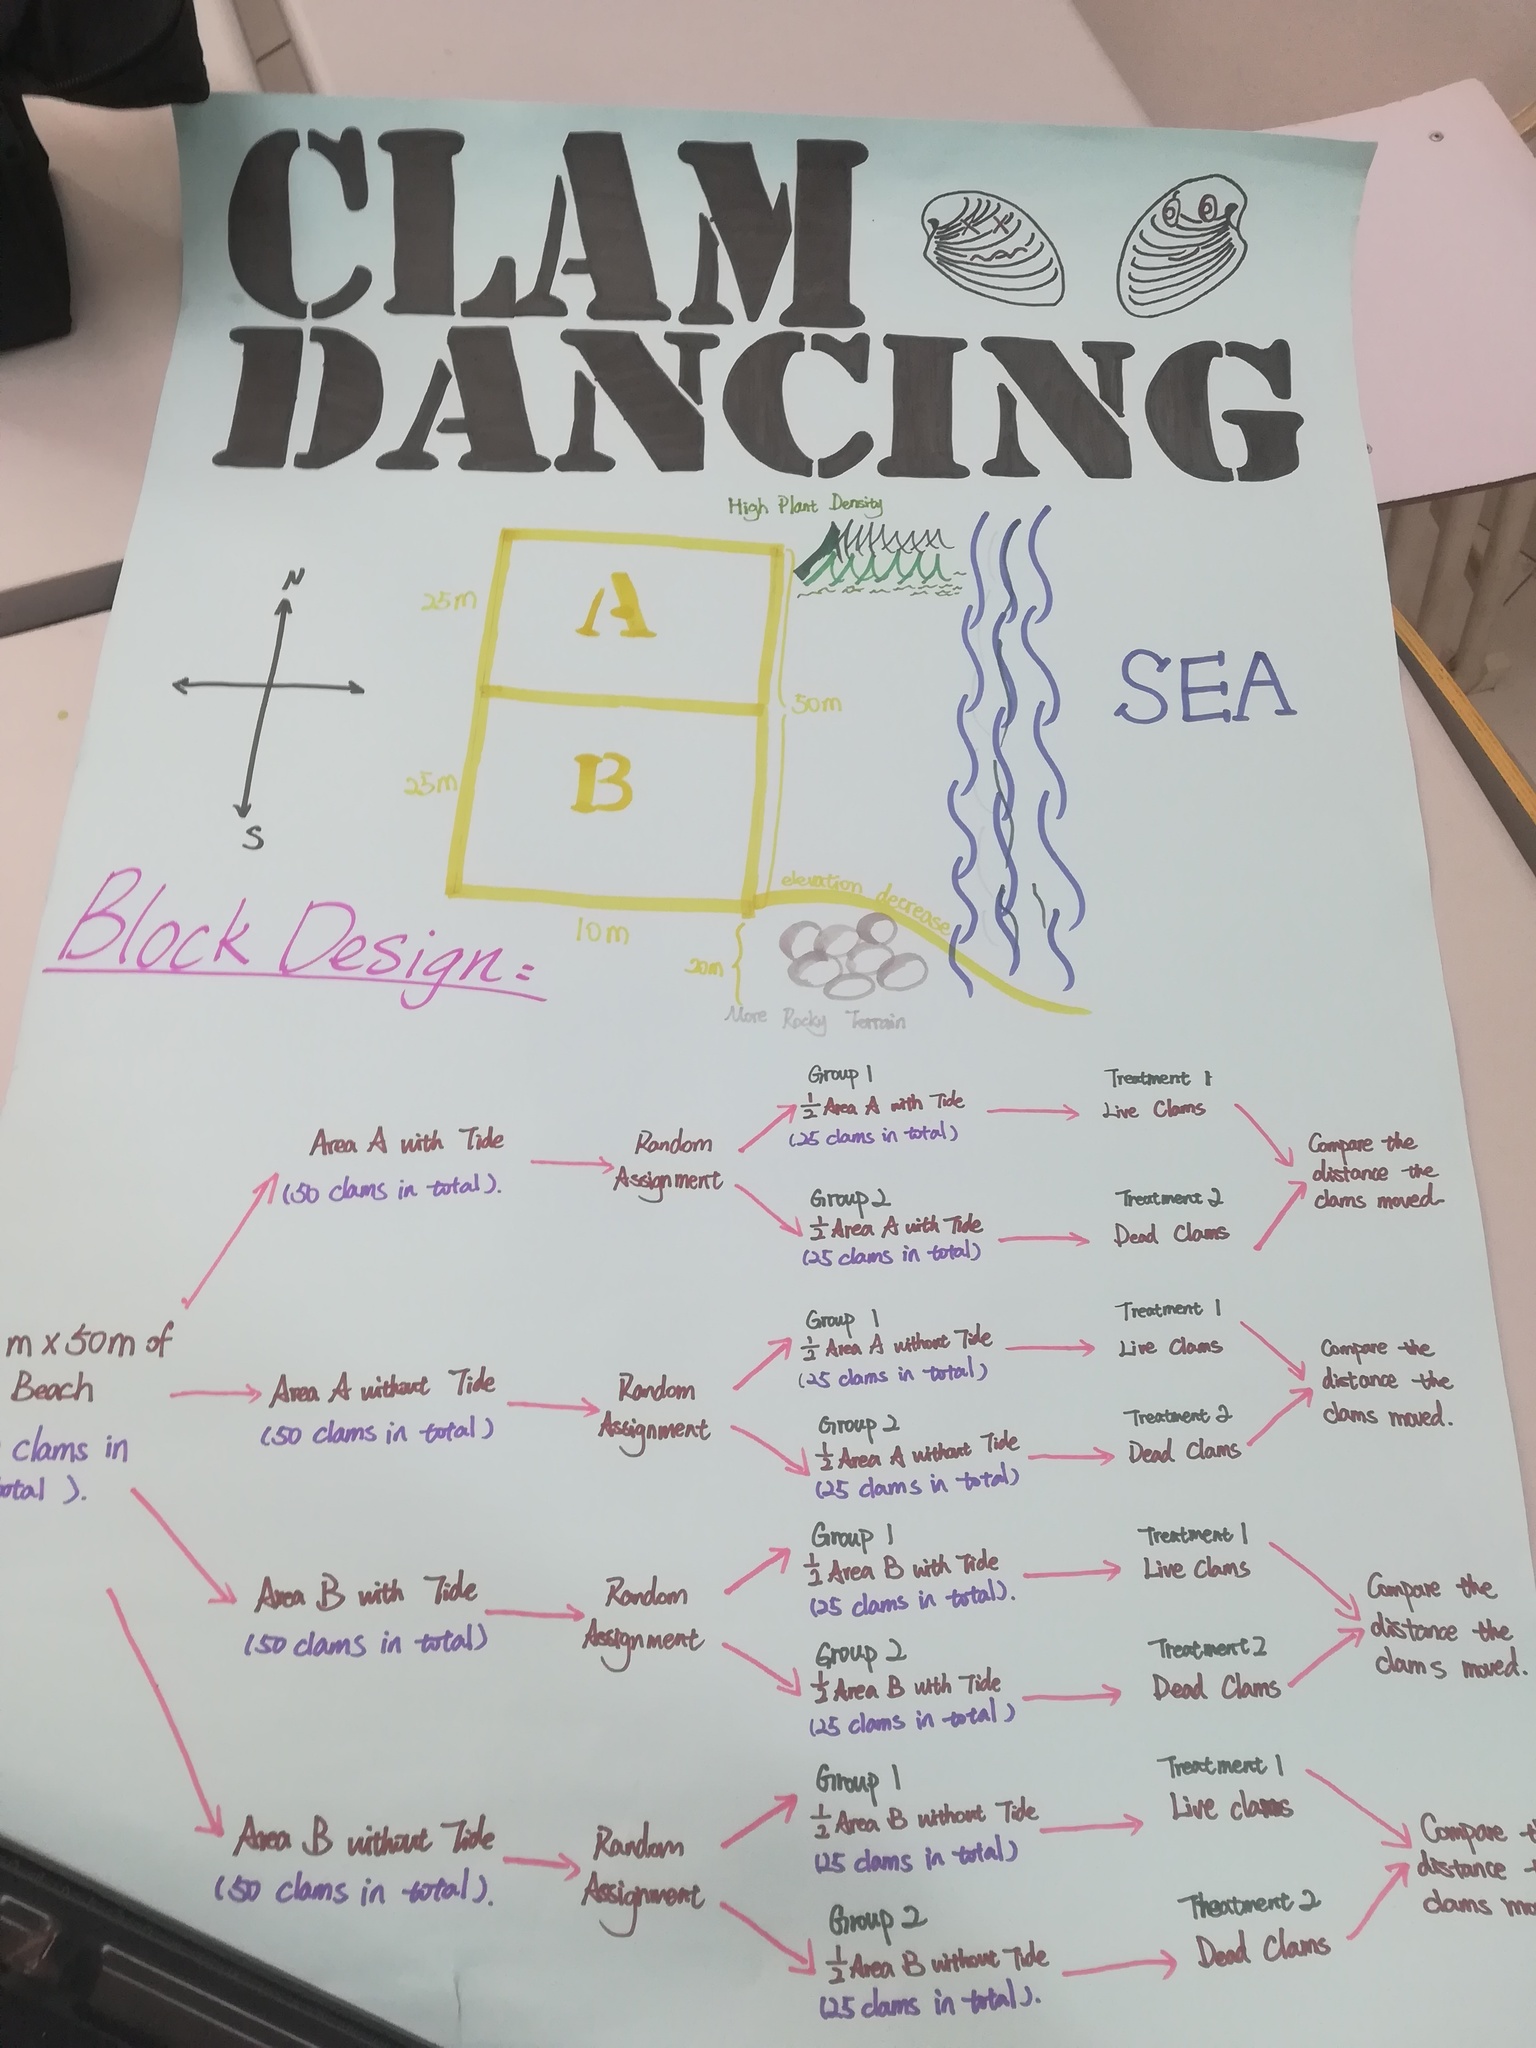 CLAM
DANCING
High Plant Density
N
S
25m
A
50m
SEA
25m
B
10m
elevation decrease
20m
More Rocky Terrain
Block Design:
m x 50m of
Beach
clams in
).
Area A with Tide
(50 clams in total).
Random
Assignment
Group 1
1/2 Area A with Tide
(25 clams in total)
Treatment 1
Live Clams
Group 2
1/2 Area A with Tide
(25 clams in total)
Treatment 2
Dead Clams
Compare the
distance the
clams moved
Area A without Tide
(50 clams in total)
Random
Assignment
Group 1
1/2 Area A without Tide
(25 clams in total)
Treatment 1
Live Clams
Group 2
1/2 Area A without Tide
(25 clams in total)
Treatment 2
Dead Clams
Compare the
distance the
clams moved.
Area B with Tide
(50 clams in total)
Random
Assignment
Group 1
1/2 Area B with Tide
(25 clams in total).
Treatment 1
Live Clams
Group 2
1/2 Area B with Tide
(25 clams in total)
Treatment 2
Dead Clams
Compare the
distance the
clams moved.
Area B without Tide
(50 clams in total).
Random
Assignment
Group 1
1/2 Area B without Tide
(25 clams in total)
Treatment 1
Live clams
Group 2
1/2 Area B without Tide
(25 clams in total).
Theatment 2
Dead Clams
Compare
distance
clams